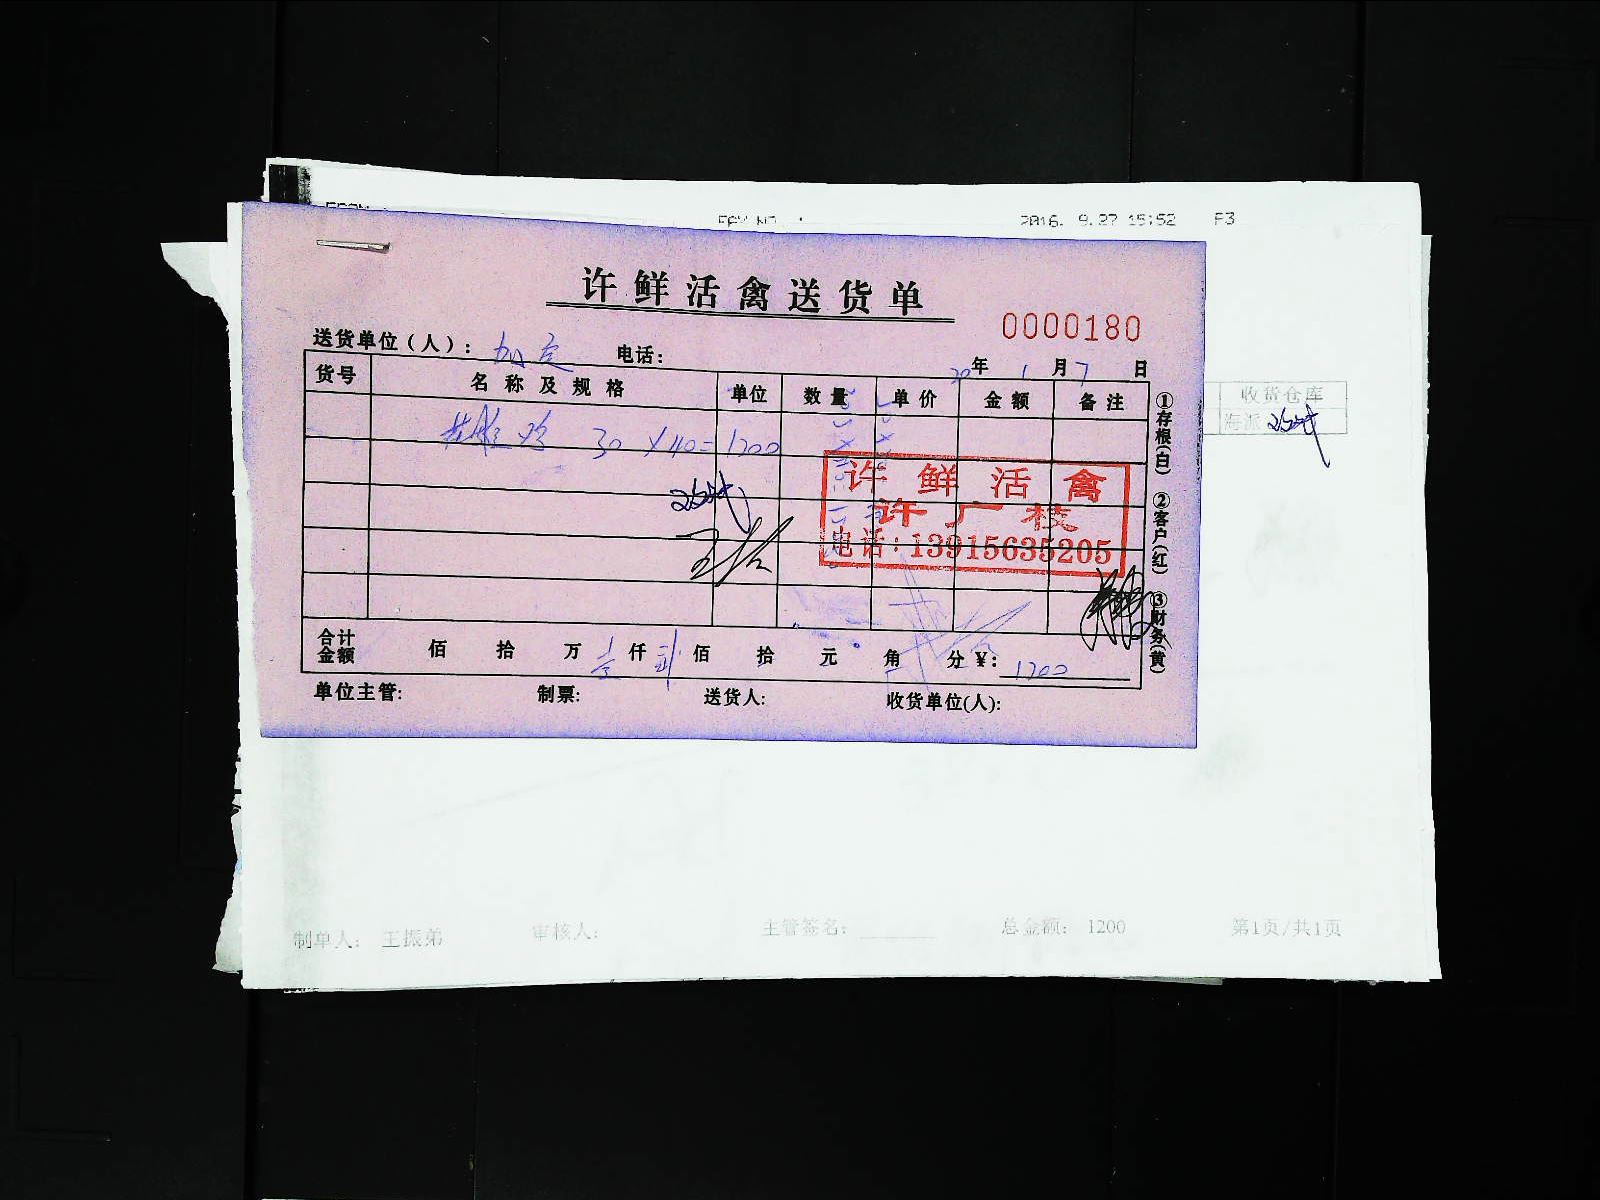 2016. 9.27 15:52 P3
许鲜活禽送货单
0000180
送货单位（人）： 加定 电话：
20年 1月 7日
货号 名称及规格 单位 数量 单价 金额 备注
草鸡 30 × 40 = 1200
许鲜活禽
许广枝
电话：13915635205
合计金额 佰 拾 万 壹仟 贰佰 拾 元 角 分 ¥： 1200
单位主管: 制票: 送货人: 收货单位(人):
①存根(白) ②客户(红) ③财务(黄)
收货仓库
海派
制单人： 王振弟 审核人： 主管签名： 总金额： 1200 第1页/共1页